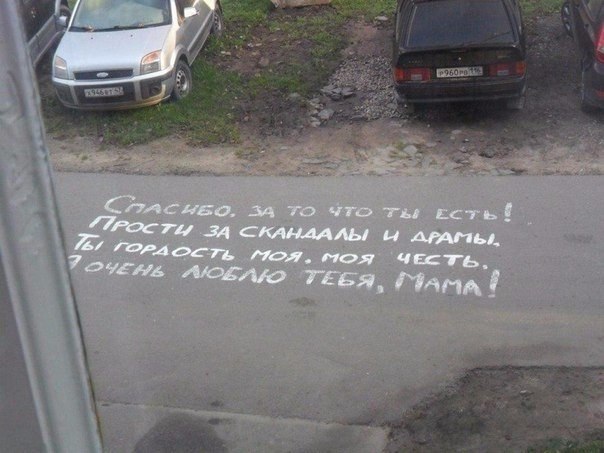 Х946ВТ
Р960РВ 116
Спасибо, за то что ты есть!
Прости за скандалы и драмы.
Ты гордость моя, моя честь.
Я очень люблю тебя, Мама!